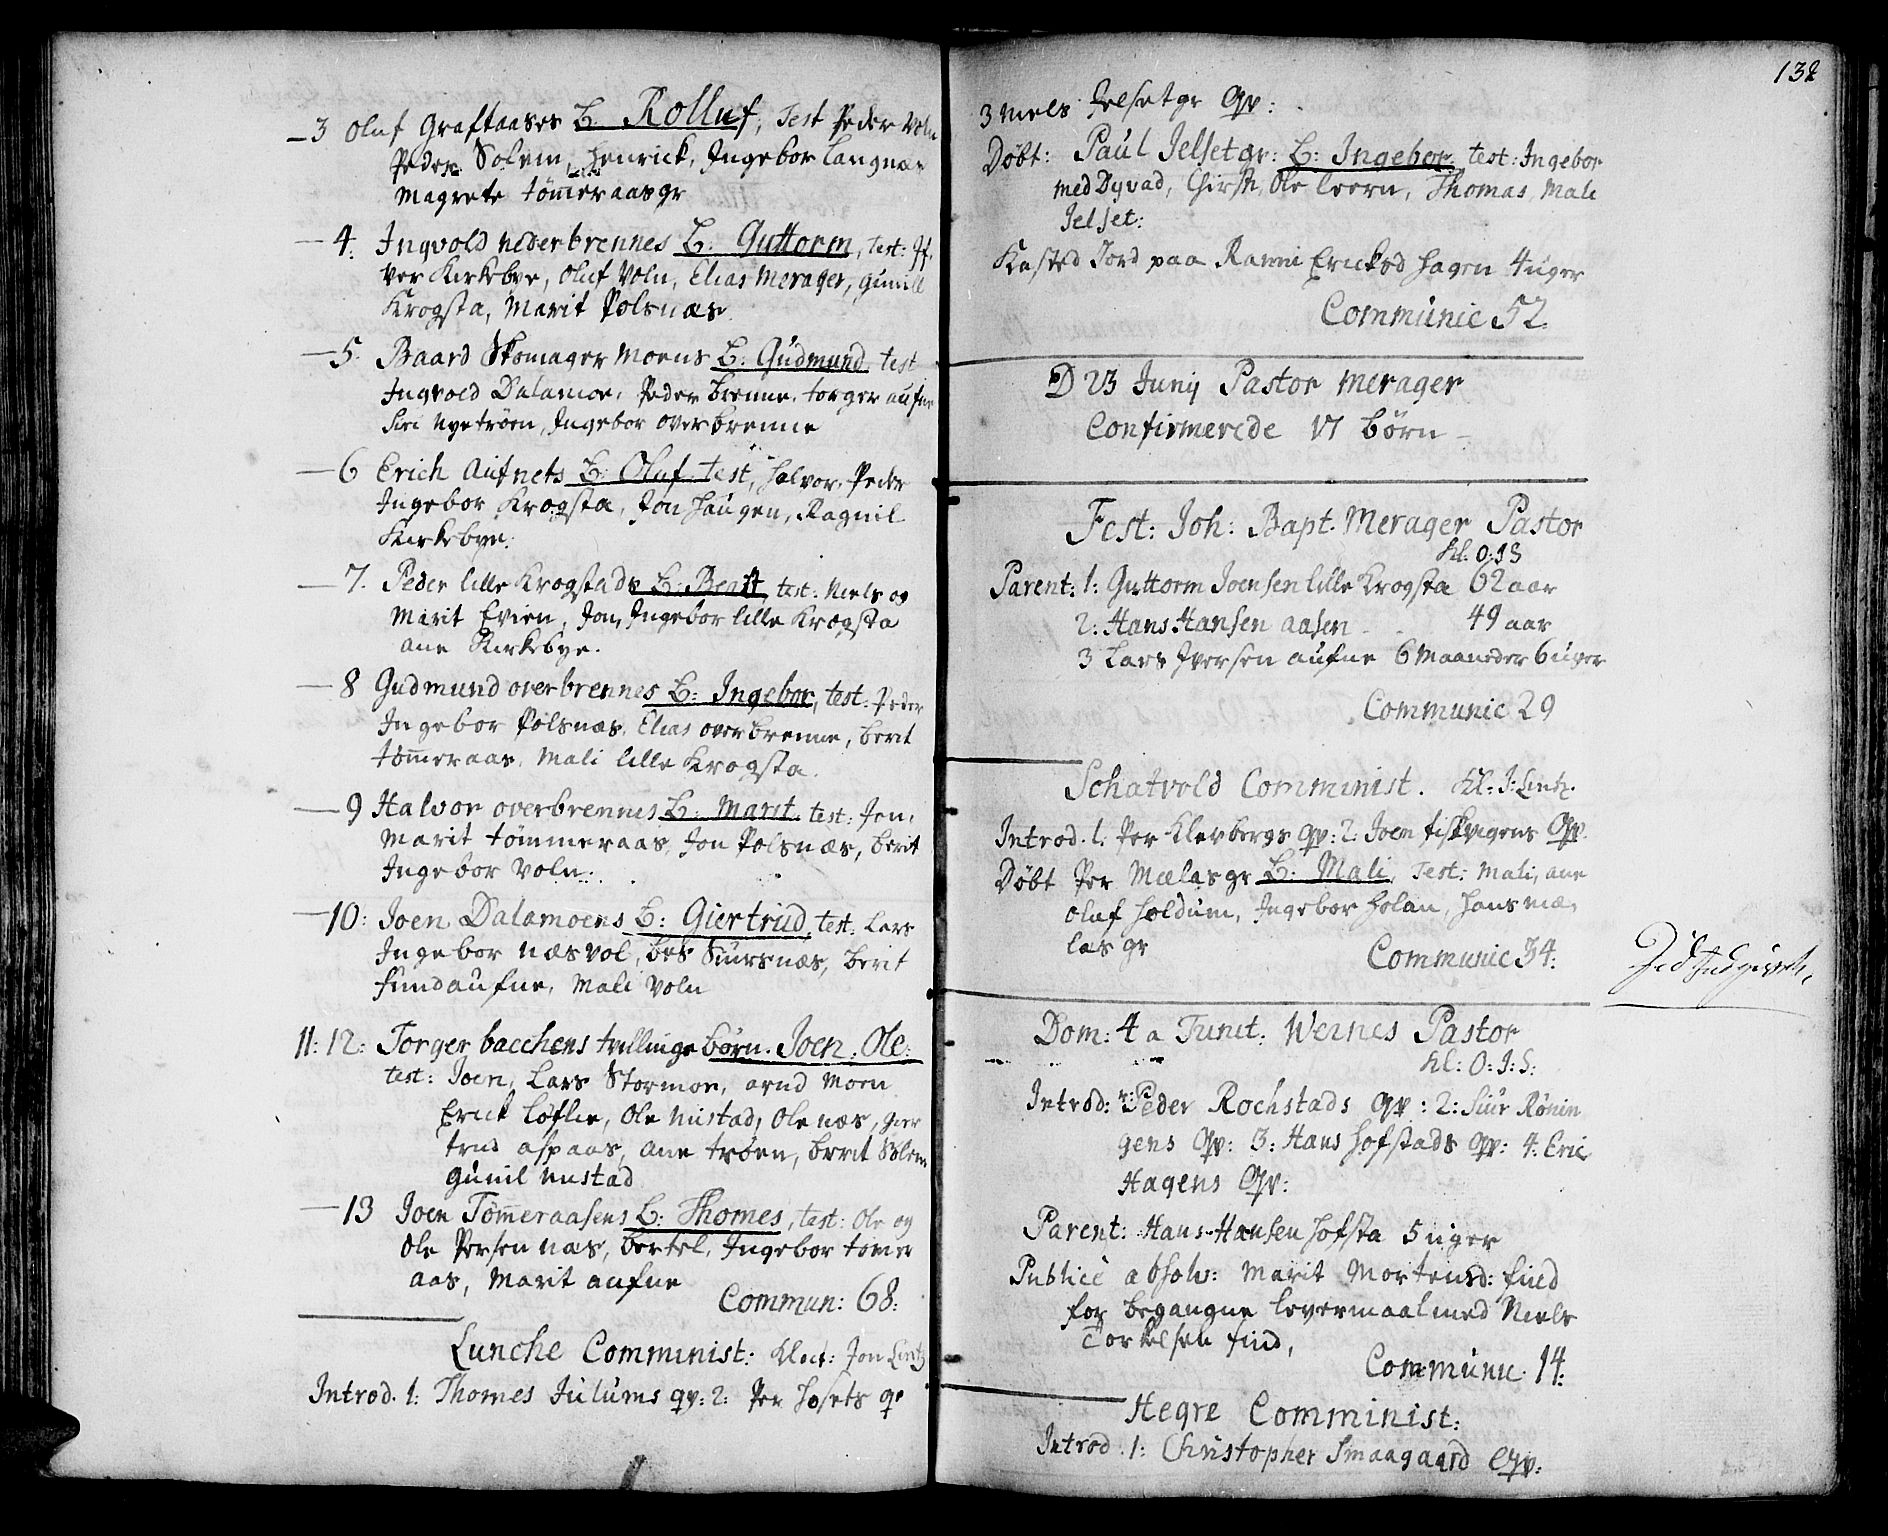 3 Oluf Graftaases B. Rolluf, Test Peder Voln
Peder Solem, Henrick, Ingebor Langnæs
Magrete tømmeraasgr
4. Ingvold nederbrennes B. Guttorm, test: If,
ver Kirkebye, Oluf Voln, Elias Merager, Gunill
Krogsta, Marit Polsnæs
5. Baard Skomager Moens B. Gudmund, test
Ingvold Dalamoe, Peder brenne, torger aufne
Siri nyetrøen, Ingebor overbrenne
6 Erich Aufnets B. Oluf. Test, Halvor, Peder
Ingebor Krogsta, Jon Haugen, Ragnil
Kirkebye:
7. Peder lille Krogstads B: Beatt, test: Niels og
Marit Evien, Jon, Ingebor lille Krogsta
ane Kirkebye.
8 Gudmund overbrennes B: Ingebor, test: Peder
Ingebor Polsnæs, Elias overbrenne, berit
tømmeraas, Mali lille Krogsta.
9 Halvor overbrennes B: Marit. test: Jen,
Marit tømmeraas, Jon Polsnæs, berit
Ingebor Voln.
10: Joen Dalamoens B: Giertrud, test: Lars
Ingebor næsvol, bes Siursnæs, berit
fundaufne, Mali Voln
11: 12: Torger bacchens tvillinge børn. Joen. Ole:
test: Joen, Lars Stormoe, arnd Moen
Erick Løflie, Ole Nustad, Ole næs, gier
trud aspaas, ane trøen, berit Solem
Gunil Nustad
13 Joen Tømmeraasens B: Thomes, test: Ole og
Ole Persen næs, bertel, Ingebor tømer
aas, Marit aufne
Commun: 68:
Lunche Comminist: Kloct: Jon Lentz
Introd. 1: Thomes Julums qv: 2: Per Hosets qv
132
3 Niels Jelsetgr Qv:
Døbt: Paul Jelsetgr: B: Ingebor, test: Ingebor
med Dyvad, Ole leern, Thomas, Mali
Jelset:
Kasted Jord paa Ranni Ericksd Hagen 4 uger
Communic 52.
D 23 Junij Pastor Merager
Confirmerede 17 børn
Fest: Joh: Bapt. Merager Pastor
Kl: O: I S
Parent: 1: Guttorm Joensen lille Krogsta 62 aar
2: Hans Hansen aasen 49 aar
3 Lars Iversen aufne 6 Maaneder 6 uger
Communic 29
Schatvold Comminist. Kl: J: Lentz.
Introd. 1. Per Klevbergs qv: 2. Joen fiskvigens Qv.
Døbt Per Mælasgr B: Mali, Test: Mali, ane
Oluf Holdum, Ingebor Holan, Hans mæ,
las gr
Communic 34:
Dom: 4 a Trinit: Wernes Pastor
Kl: O: I: S:
Introd: 1: Peder Rochstads qv: 2: Siur Rønin
gens Qv: 3: Hans Hofstads qv: 4: Eric
Hagens Qv:
Parent: Hans Hansen Hofsta 5 uger
Publicè absolv: Marit Mortensd: fiud
for begangne levermaal med Niels
Torkelsen fiud,
Communic. 14:
Hegre Comminist:
Introd. 1: Christopher Smaagaard Qv: